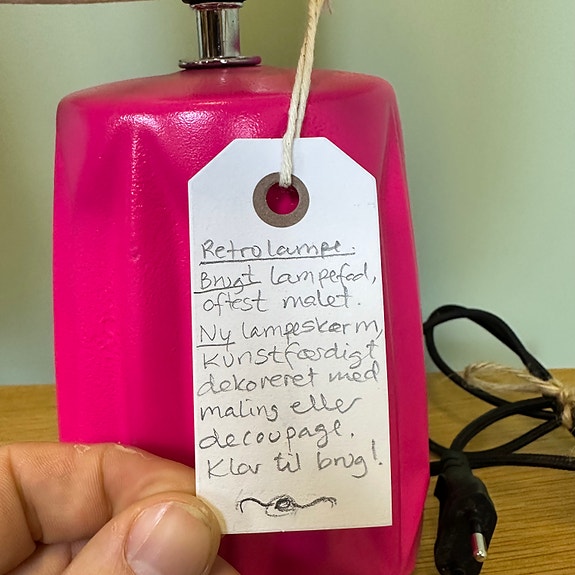 Retrolampe.
Brugt lampefod,
oftest malet.
Ny lampeskærm,
kunstfærdigt
dekoreret med
maling eller
decoupage.
Klar til brug!